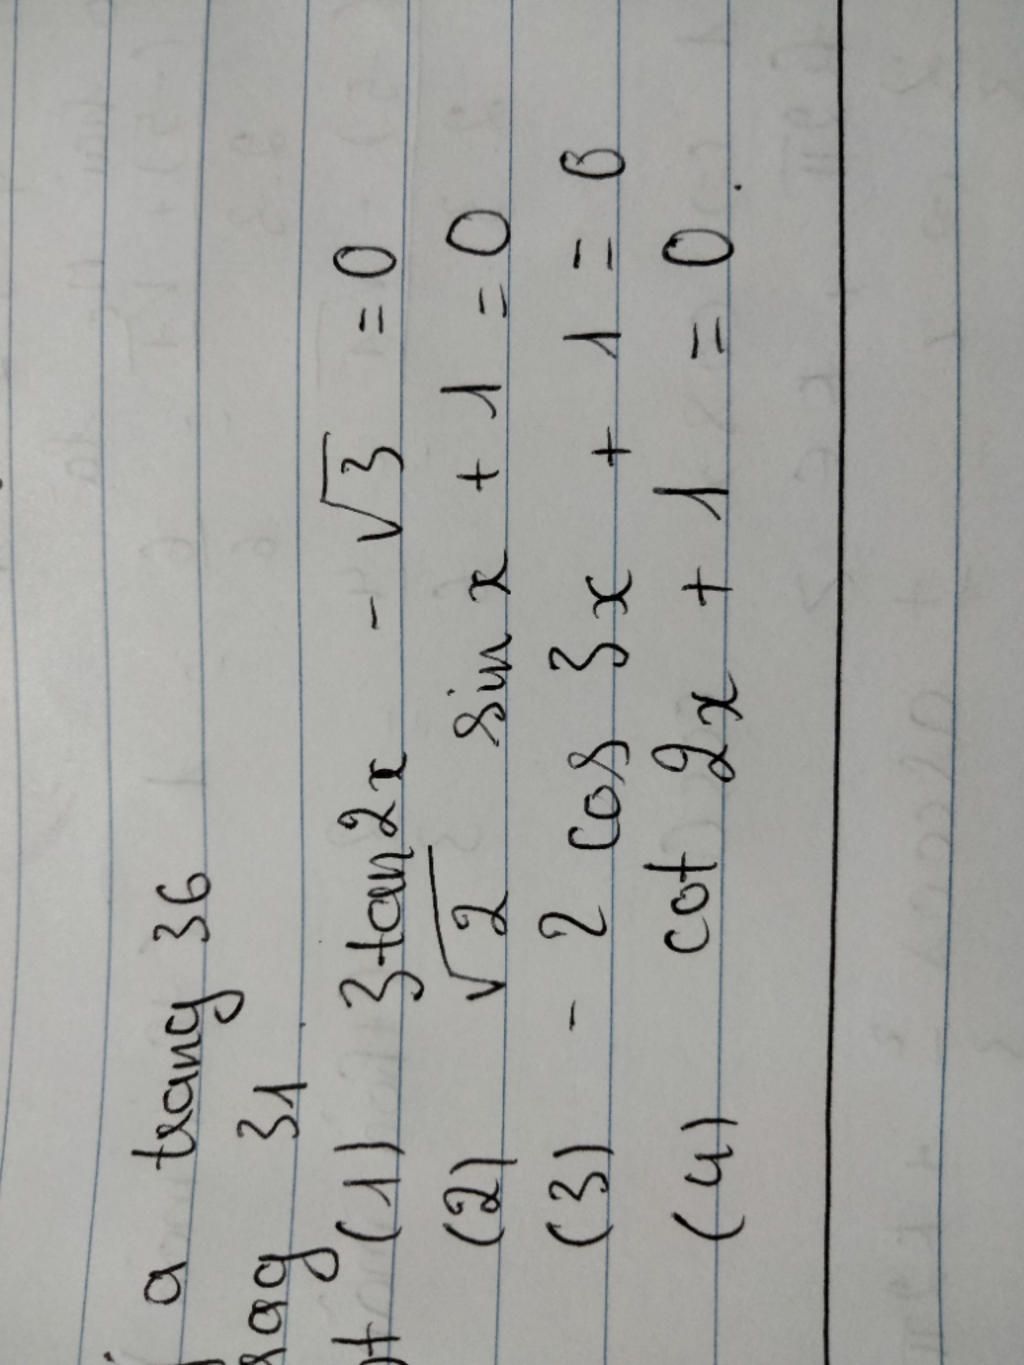 a trang 36
31
(1) 3tan2x - √3 = 0
(2) √2 sin x + 1 = 0
(3) - 2 cos 3x + 1 = 0
(4) cot 2x + 1 = 0